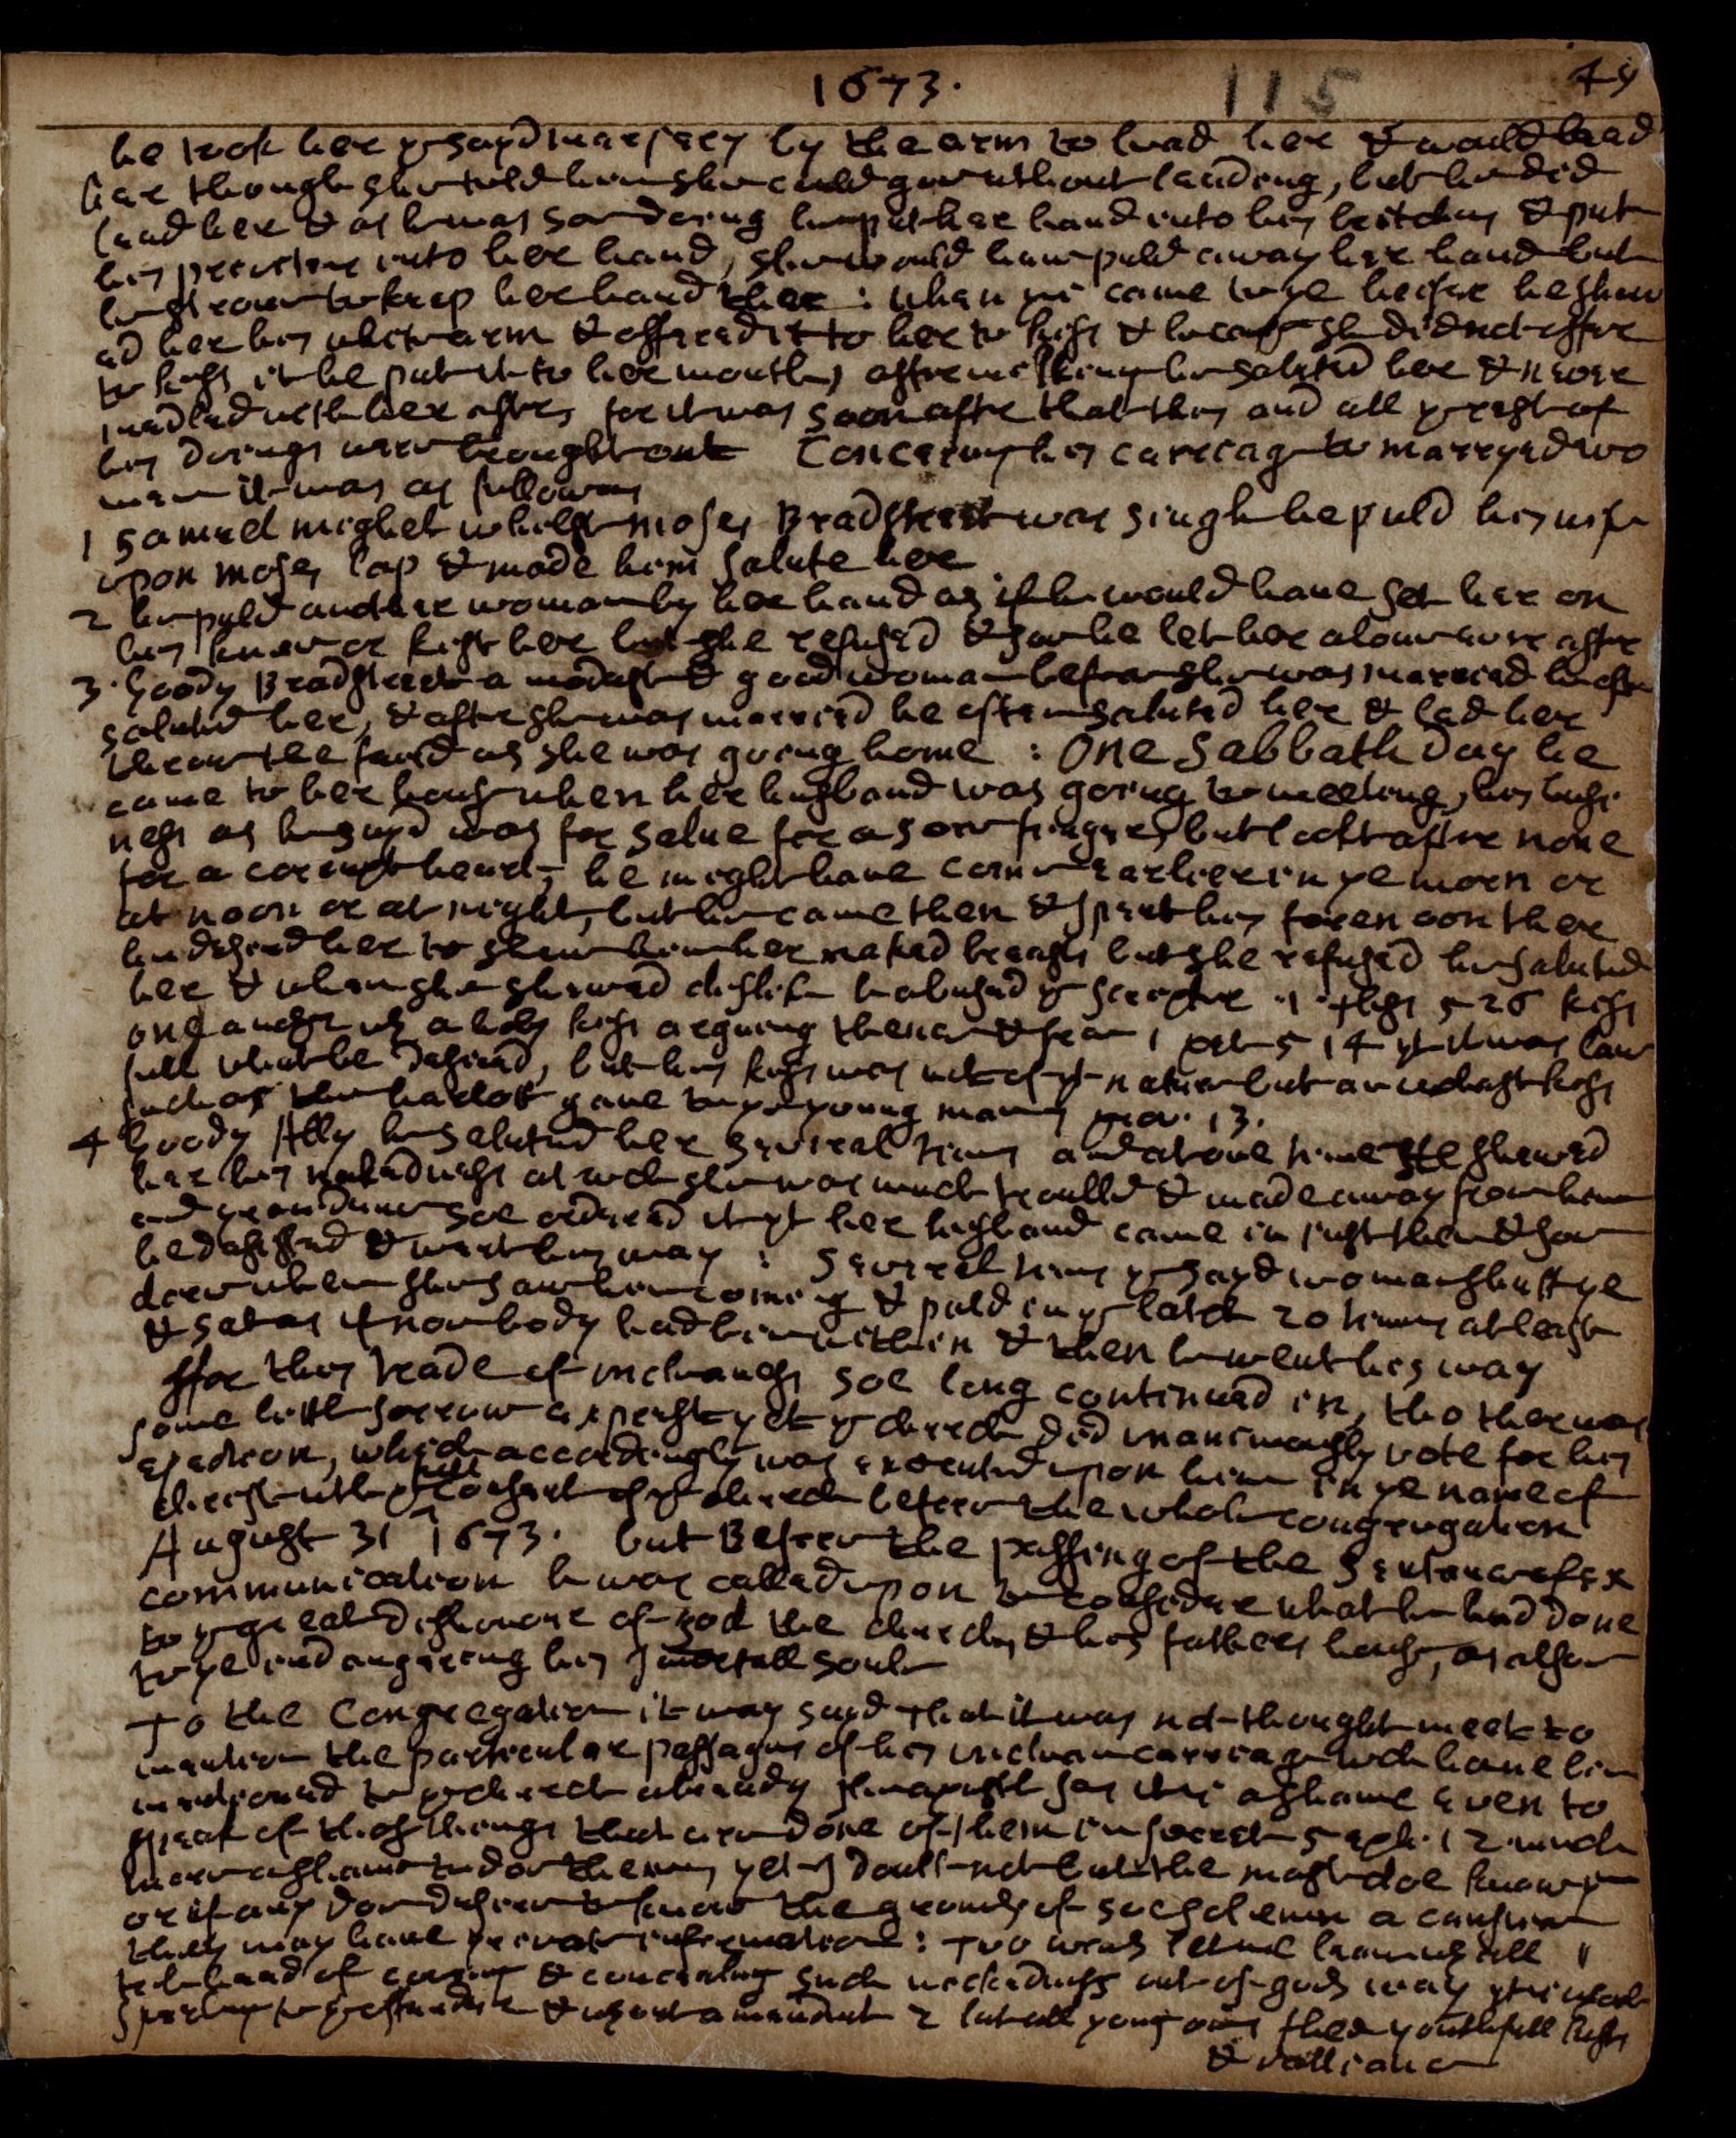 1673. 115 49
he took her ye sayd mary ses by the arm to lead her & would lead
her though she told him she could goe without leading, but he did
lead her & as he was soe doeing he put her hand into his britches & put
his privities into her hand, she would have puld away her hand but
he strove to keep her hand there : when yei came to ye heifer he shew
ed her his white arm & offered it to her to kiss & because she did not offer
to kiss it he put it to her mouth, after milking he saluted her & never
medled with her after, for it was soon after that this and all ye rest of
his doeings were brought out Concerning his cariage to marryed wo
men it was as followes
1 Samuel mighel whilst moses Bradstreet was single he puld his wife
upon moses lap & made him salute her
2 he puld another woman by her hand as if he would have set her on
his knee or kist her but she refused & soe he let her alone ever after
3. Goody Bradstreet a modest & good woman before she was married he often
saluted her, & after she was married he often saluted her & led her
throw the feild as she was going home : One Sabbath day he
came to her house when her husband was going to meeting, his busi
ness as he sayd was for salve for a sore finger, but lookt after none
for a corrupt heart, he might have come earlier in ye morn or
at noon or at night, but he came then & spent his forenoon there
he desired her to shew him her naked breasts but she refused he saluted
her & when she shewed dislike he abused ye scripture 1 thess 5 26 kiss
one another with a holy kiss arguing thence & from 1 pet 5 14 yt it was law
full what he desired, but his kiss was not of yt nature but an unchast kiss
such as the harlot gave to ye young man, prov. 13.
4 Goody Ally he saluted her several times and at one time he shewed
her his nakedness at wch she was much troubled & made away from him
and providence soe ordered it yt her husband came in just then & soe
he desisted & went his way : Several times ye sayd woman shutt ye
dore when she saw him coming & puld in ye latch 20 times at least
& sat as if nowbody had bin within & then he went his way
ffor this trade of unclvaness soe long continued in, tho there was
some little sorrow exprest yet ye church did unanimously vote for his
ejection, which accordingly was executed upon him in ye name of
christ with ye full consent of ye church before the whole congregation
August 31 1673. but Before the passing of the Sentence of ex
communication he was called upon to consider what he had done
to ye great dishonor of god the church, & his fathers house, as alsoe
to ye endangering his Imortall soule
To the Congregation it was sayd That it was not thought meet to
mention the particular passages of his unclean carriage wch have bin
mentioned to ye church already the apostle says it is a shame even to
speak of those things that are done of them in secret 5 eph. 12 much
more a shame to doe them, yet I doubt not but the most doe know ym
or if any doe desire to know the grounds of soe solemn a censure
they may have private information : Two words let me leave with all 1
take heed of covering & concealing such wickedness out of gods way yt is what
& without amendmt 2 let all young ones flee youthfull lusts
& dalliance